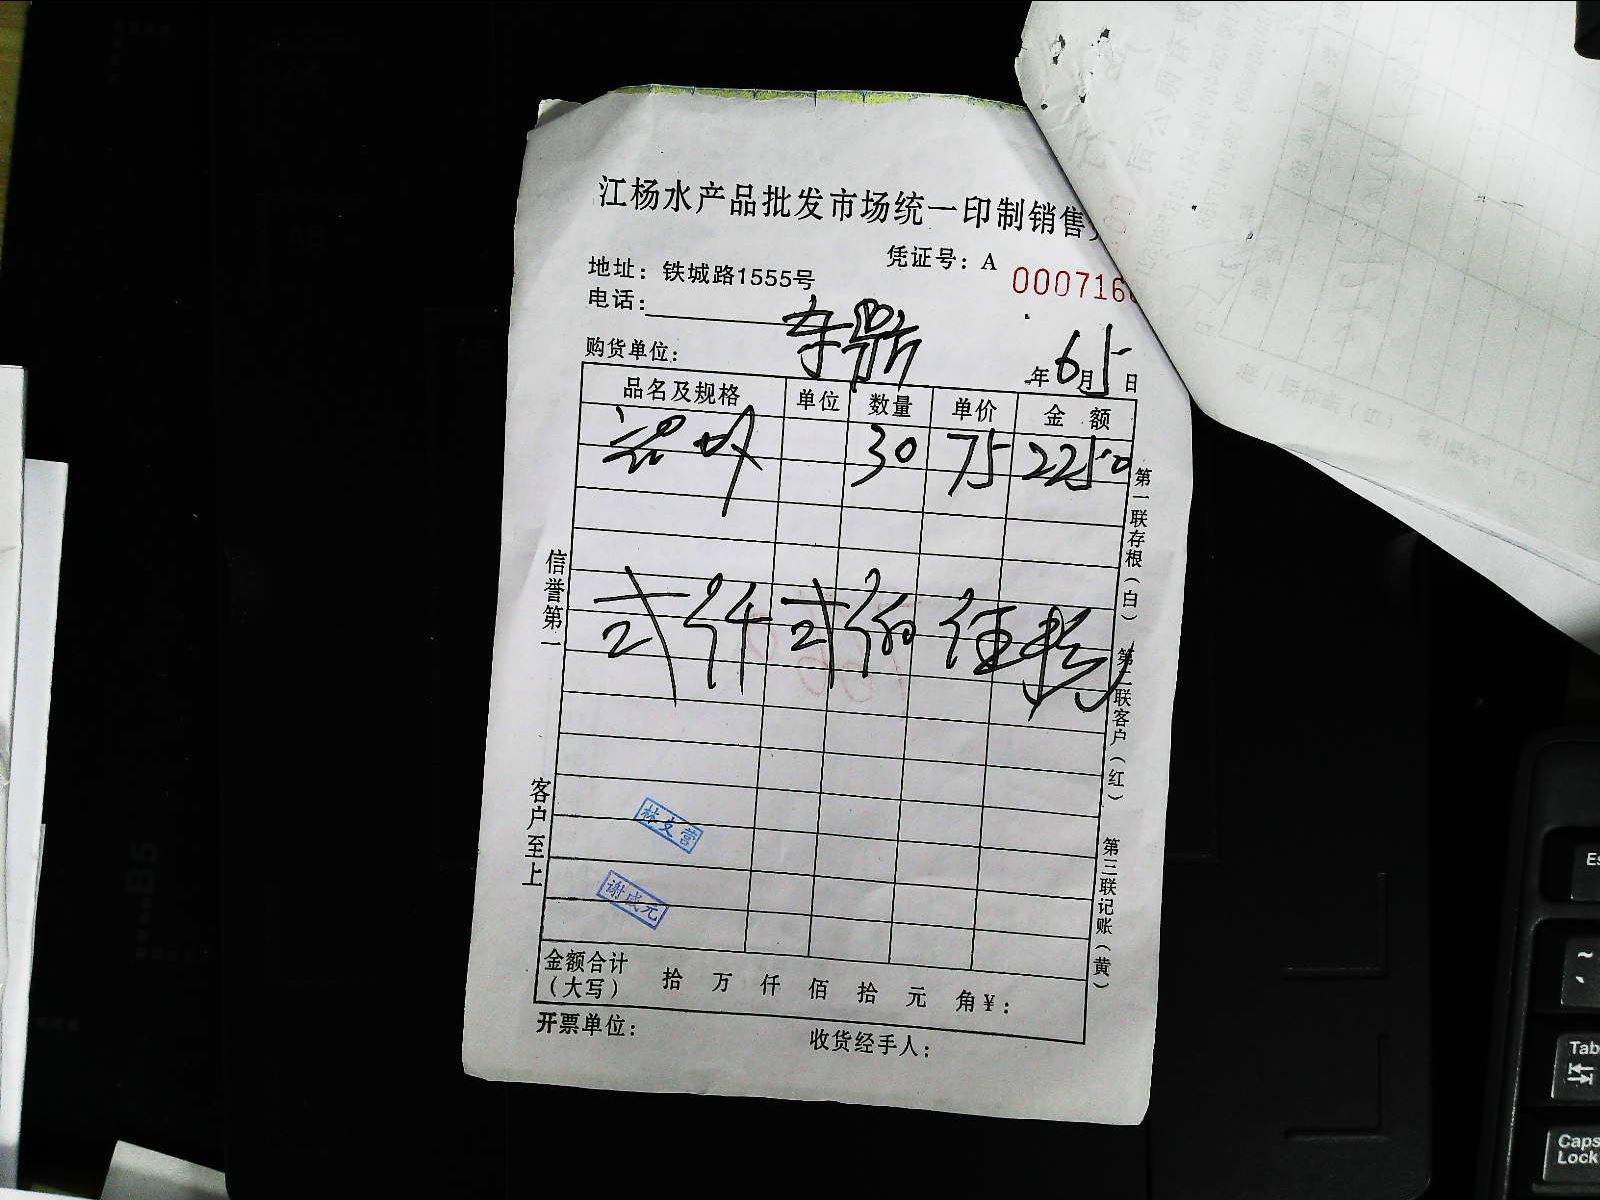 江杨水产品批发市场统一印制销售
凭证号：A 000716
地址：铁城路1555号
电话：
购货单位：
年6月5日
品名及规格 单位 数量 单价 金 额
30 75 2250
弍仟弍佰伍拾
信誉第一
客户至上
第一联存根（白）
第二联客户（红）
第三联记账（黄）
林文营
谢成元
金额合计（大写） 拾 万 仟 佰 拾 元 角￥：
开票单位：
收货经手人：
Es
~
Tab
Caps
Lock